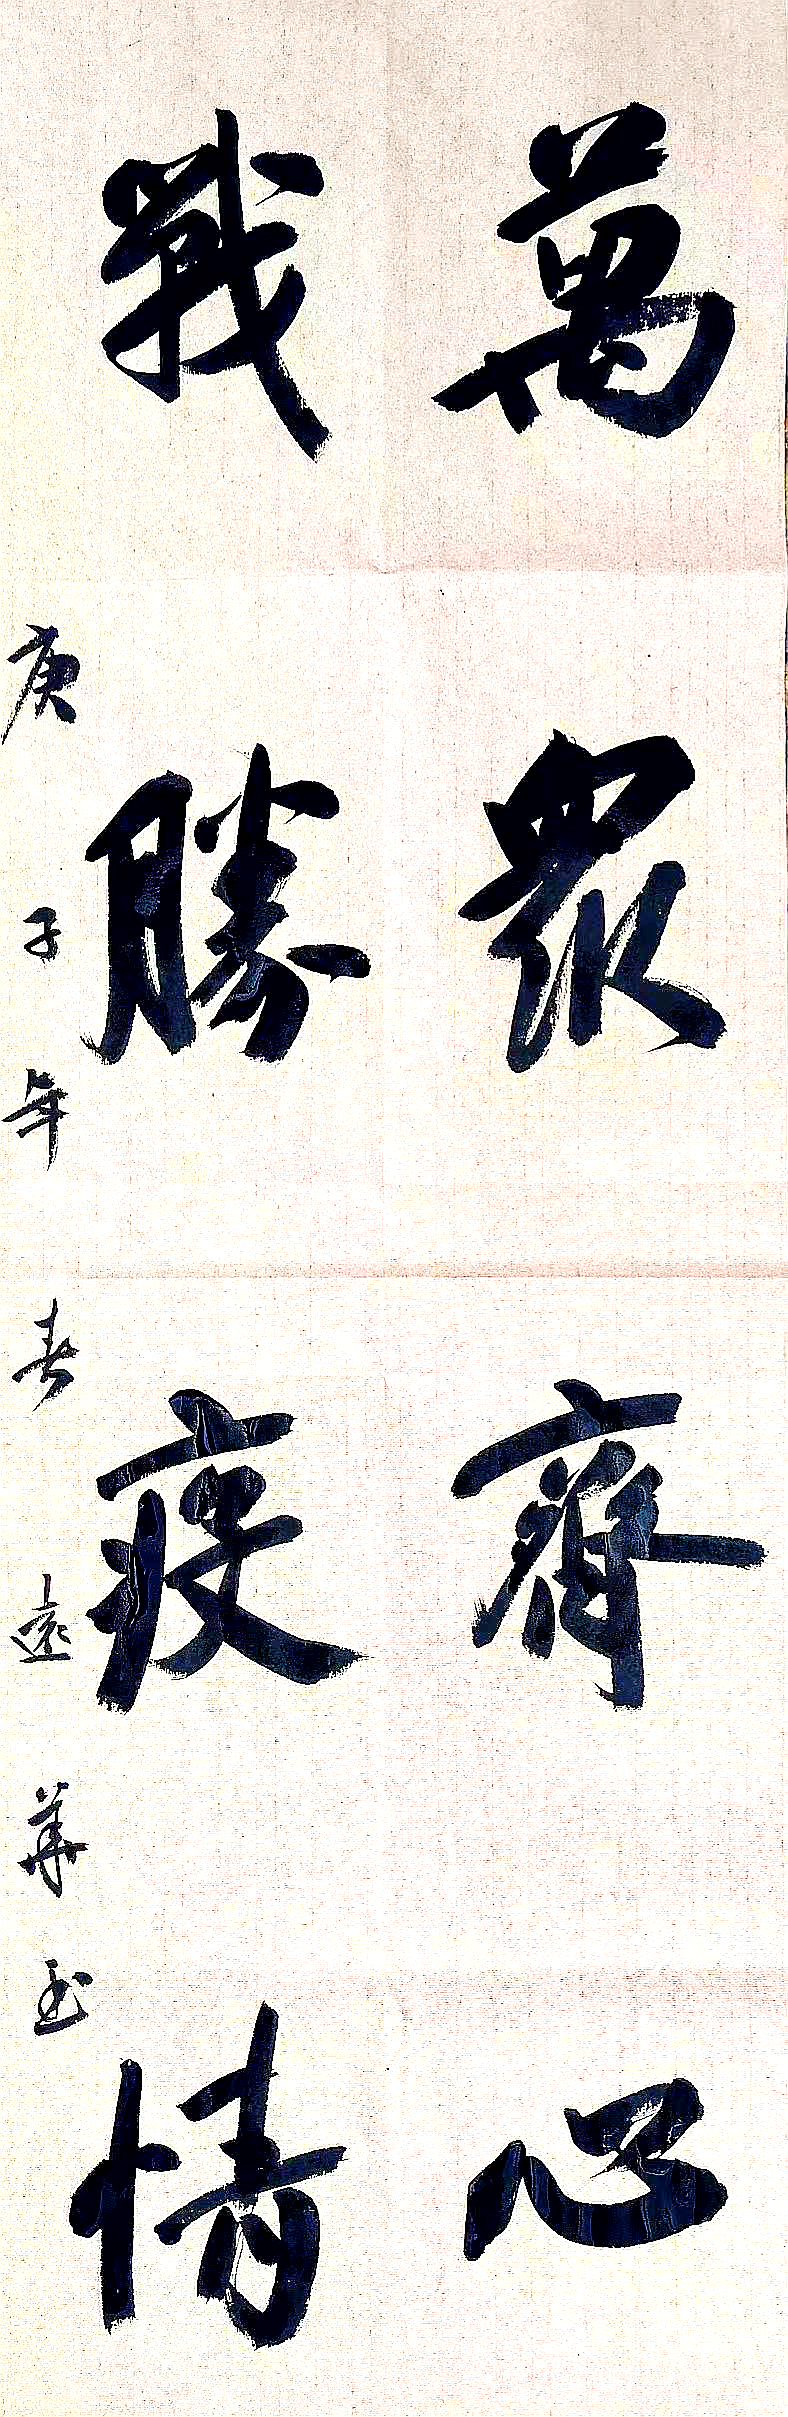 萬眾齊心
戰勝疫情
庚子年春遠華書